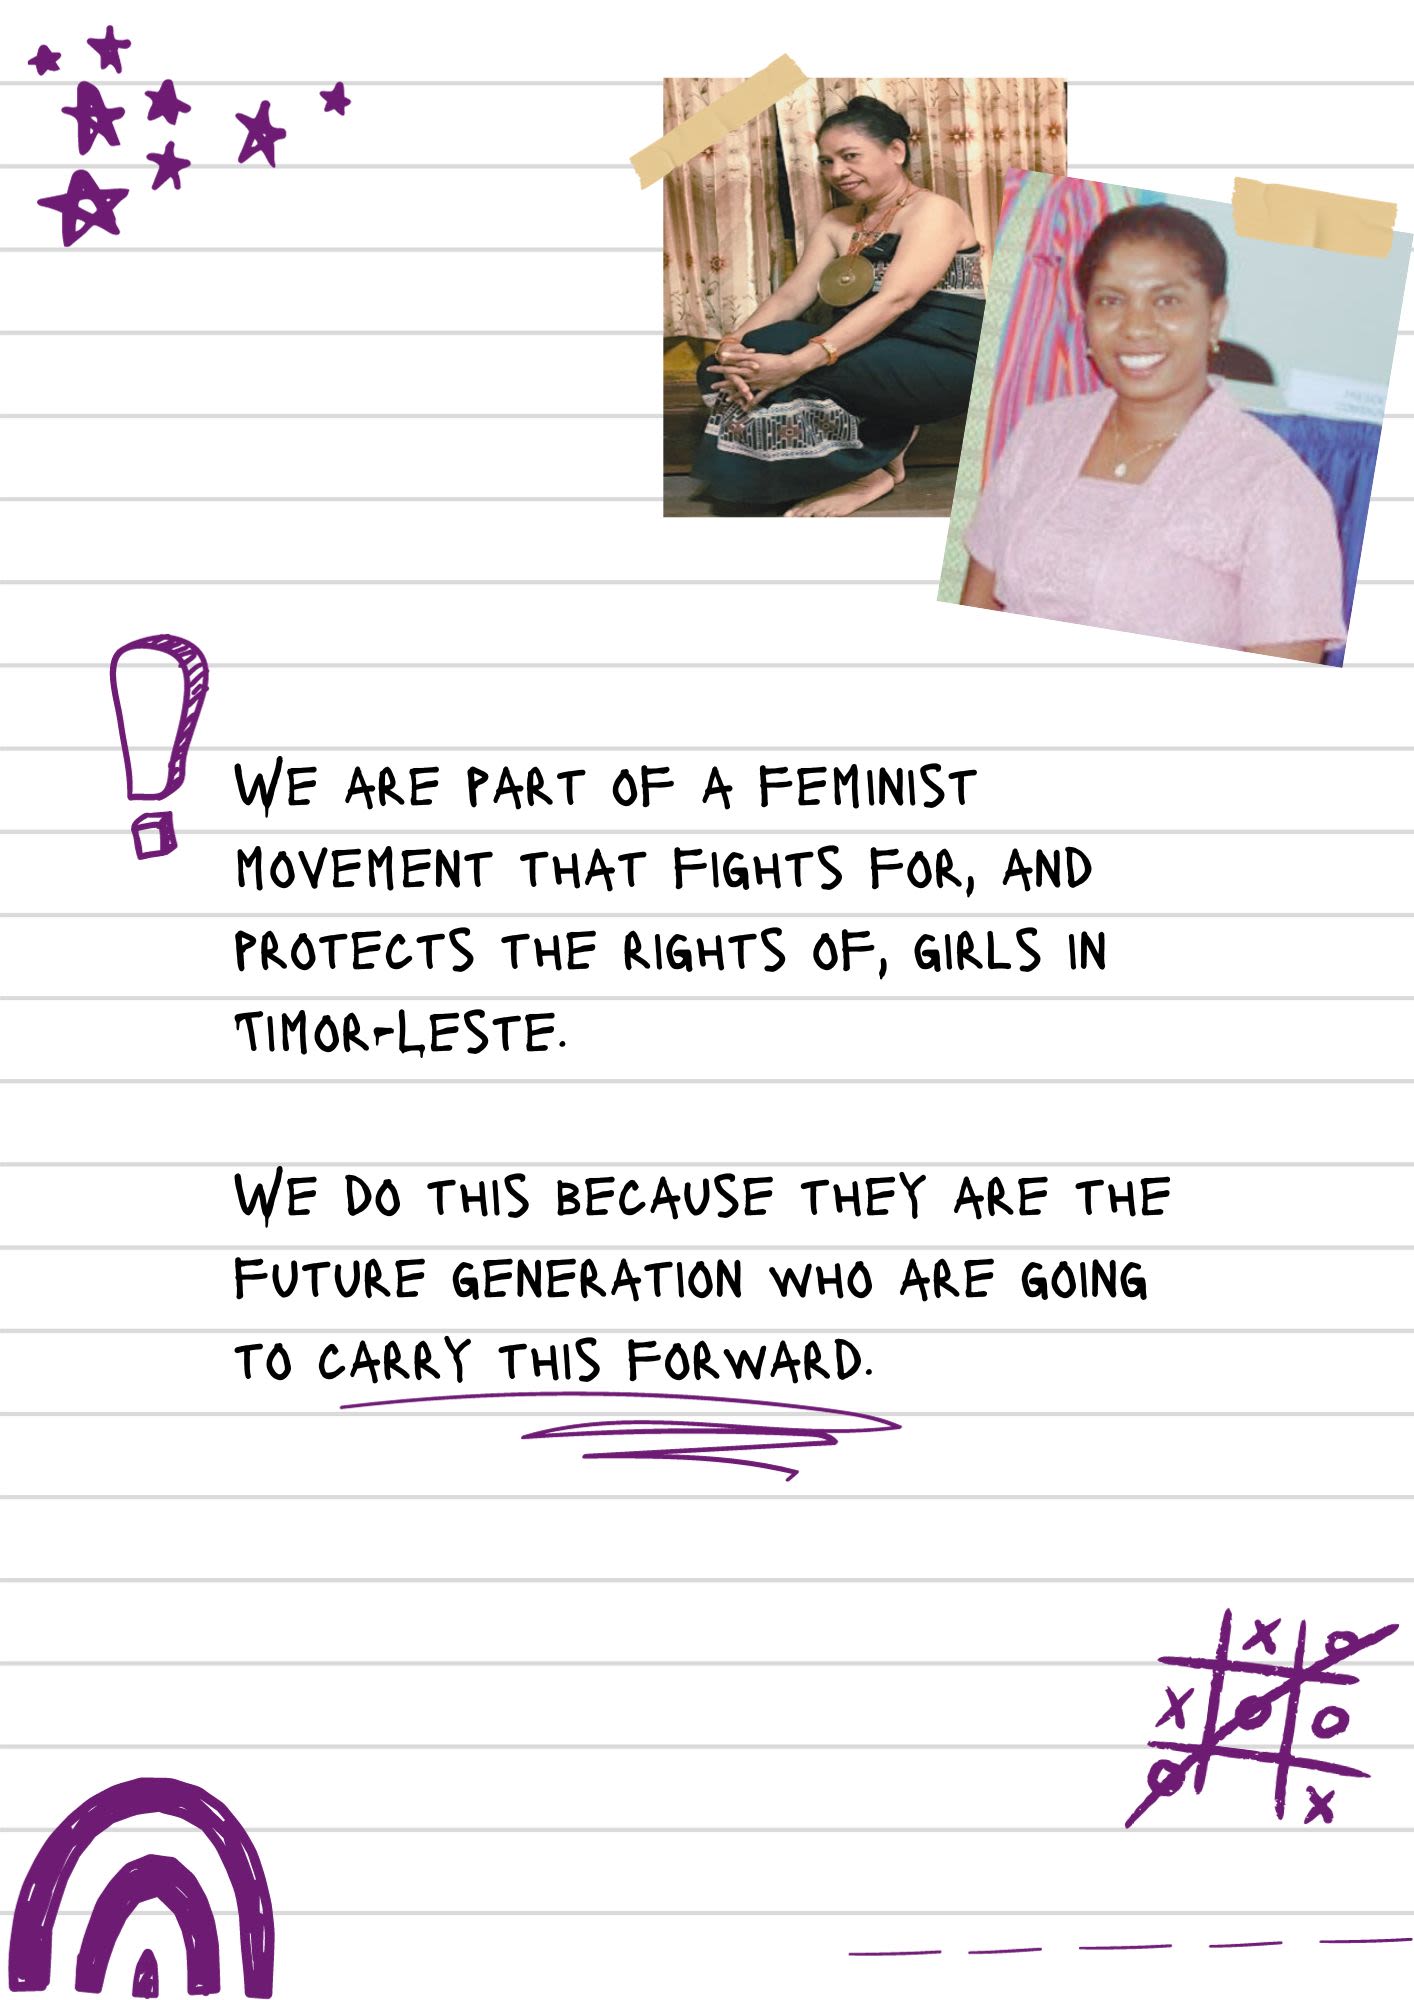 WE ARE PART OF A FEMINIST
MOVEMENT THAT FIGHTS FOR, AND
PROTECTS THE RIGHTS OF, GIRLS IN
TIMOR-LESTE.
WE DO THIS BECAUSE THEY ARE THE
FUTURE GENERATION WHO ARE GOING
TO CARRY THIS FORWARD.
X O
X O O
O X